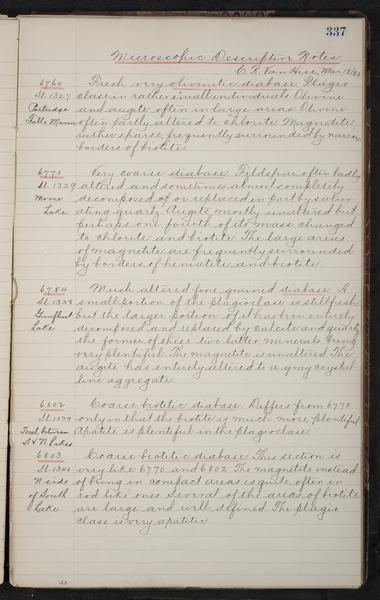 337
Microscopic Descriptive Notes.
C. R. Van Hise, Mar 18/93
6760 Fresh very olivinitic diabase Plagio
Sl. 1327 clase in rather small individuals Olivine
Partridge and augite often in large areas Olivine
Falls Minn often partly altered to chlorite Magnetite
rather sparce, frequently surrounded by narrow
borders of biotite.
6770 Very coarse diabase Feldspar often badly
Sl. 1329 altered and sometimes almost completely
Moose decomposed or replaced in part by satur
Lake ating quartz Augite mostly unaltered but
perhaps one fourth of its mass changed
to chlorite and biotite The large areas
of magnetite are frequently surrounded
by borders of hematite and biotite.
6784 Much altered fine grained diabase A
Sl. 1333 small portion of the plagioclase is still fresh
Gunflint but the larger portion of it has been entirely
Lake decomposed and replaced by calcite and quartz
the former of these two latter minerals being
very plentiful The magnetite is unaltered The
augite has entirely altered to a gray crystal
line aggregate.
6802 Coarse biotitic diabase Differs from 6770
Sl. 1339 only in that the biotite is much more plentiful
Trail between Apatite is plentiful in the plagioclase
S & N Lakes
6803 Coarse biotitic diabase This section is
Sl. 1340 very like 6770 and 6802 The magnetite instead
N side of being in compact areas is quite often in
of South rod like ones Several of the areas of biotite
Lake are large and well defined The plagio
clase is very apatitic.